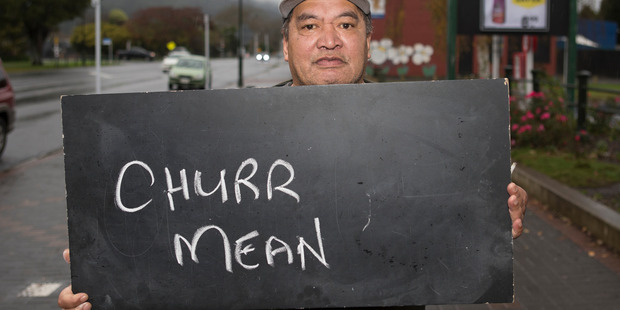 CHURR
MEAN